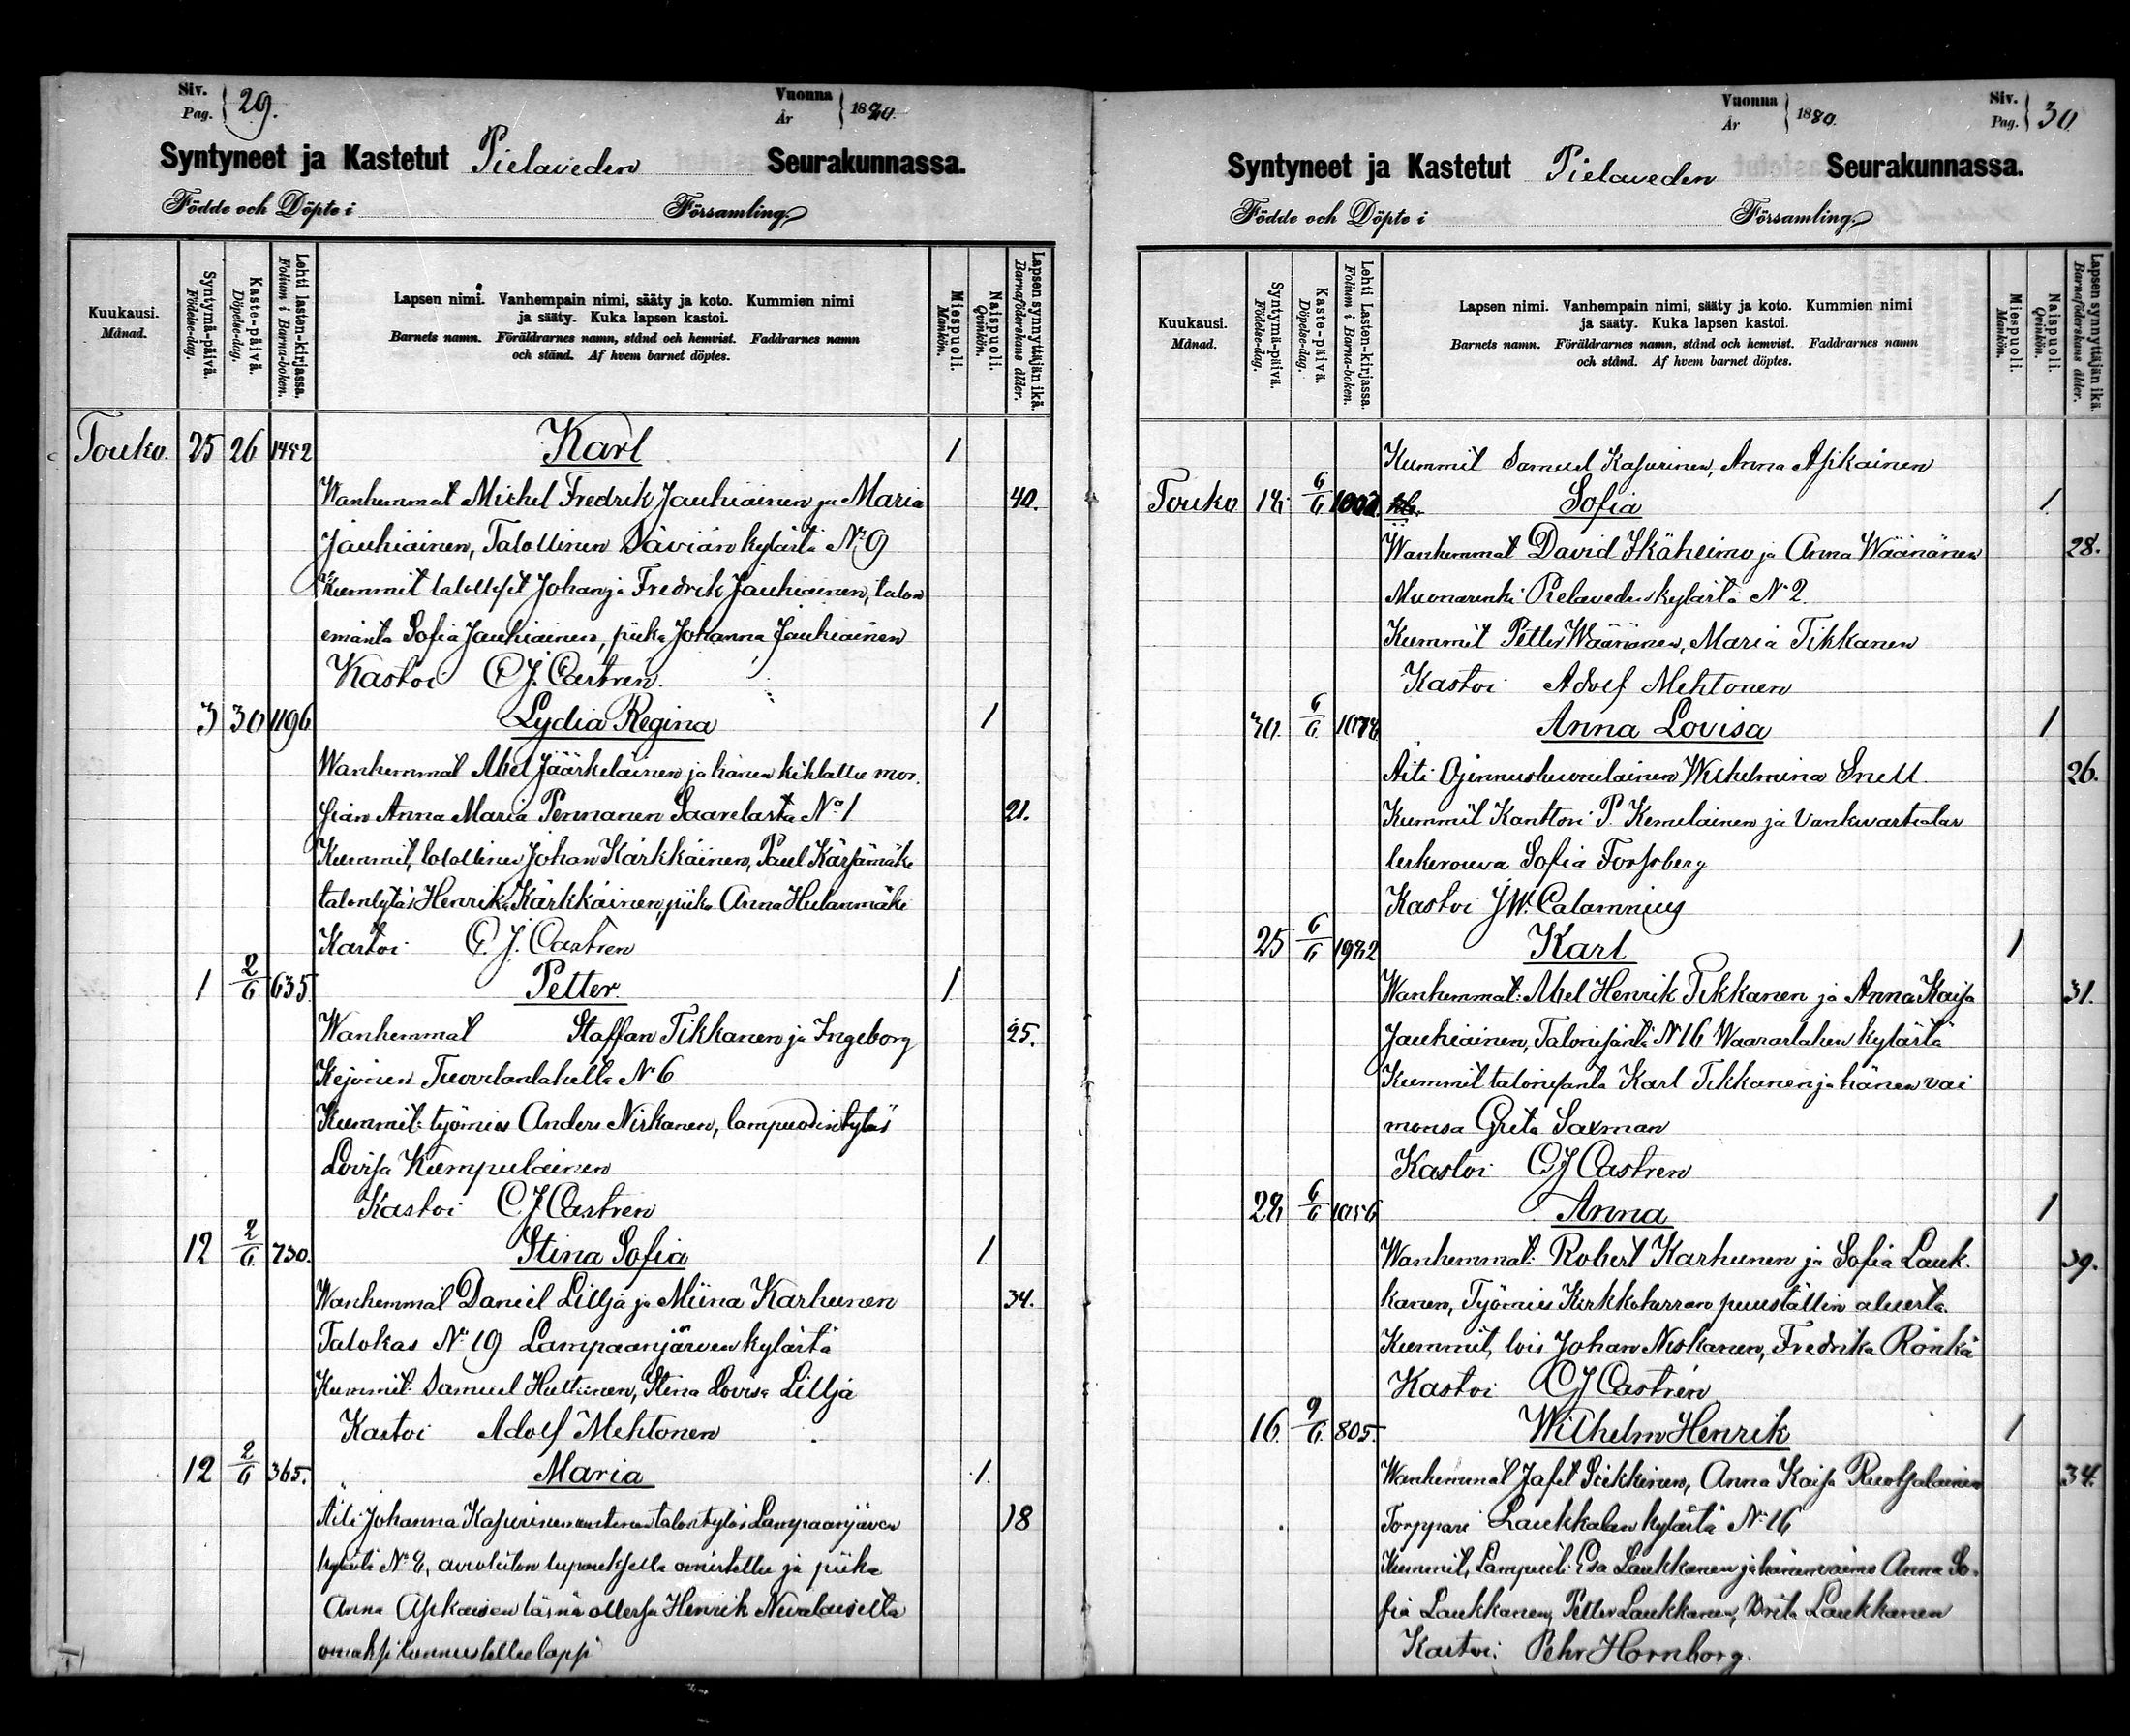 Siv.
Pag. 29.
Vuonna
År 1880.
Syntyneet ja Kastetut Pielaveden Seurakunnassa.
Födde och Döpte i Församling.
Kuukausi.
Månad.
Syntymä-päivä.
Födelse-dag.
Kaste-päivä.
Döpelse-dag.
Lehti lasten-kirjassa.
Folium i Barna-boken.
Lapsen nimi. Vanhempain nimi, sääty ja koto. Kummien nimi
ja sääty. Kuka lapsen kastoi.
Barnets namn. Föräldrarnes namn, stånd och hemvist. Faddrarnes namn
och stånd. Af hvem barnet döptes.
Miespuoli.
Mankön.
Naispuoli.
Qvinkön.
Lapsen synnyttäjän ikä.
Barnaföderskans ålder.
Touko. 25 26 1452 Karl 1
Wanhemmat Michel Fredrik Jauhiainen ja Maria 40.
Jauhiainen, Talollinen Säviän kylästä No 9
Kummit talolliset Johan ja Fredrik Jauhiainen, talon
emäntä Sofia Jauhiainen, piika Johanna Jauhiainen
Kastoi C. J. Castren.
3 30 1196 Lydia Regina 1
Wanhemmat Abel Jääskeläinen ja hänen kihlattu mor.
sian Anna Maria Pennanen Saarelasta No 1 21.
Kummit, talollinen Johan Kärkkäinen, Paul Kärsämäke
talontytär Henrika Kärkkäinen, piika Anna Hulanmäki
Kastoi C. J. Castren
1 2/6 635. Petter. 1
Wanhemmat Staffan Tikkanen ja Ingeborg 25.
Kejonen Tuovilanlahella No 6
Kummit: työmies Anders Niskanen, lampuodintytär
Lovisa Kumpulainen
Kastoi C J Castren
12 2/6 730. Stina Sofia 1
Wanhemmat Daniel Lillja ja Miina Karhunen 34.
Talokas No 19 Lampaanjärven kylästä
Kummit: Samuel Huttunen, Stina Lovisa Lillja
Kastoi Adolf Mehtonen
12 2/6 365. Maria 1.
Äiti Johanna Kasurinen entinen talontytär Lampaanjärven 18
kylästä No 8, avioliiton lupauksella ja piika
Anna Asikaisen läsnä ollessa Henrik Nevalaiselta
omaksi tunnustettu lapsi
Vuonna
År 1880.
Siv.
Pag. 30
Syntyneet ja Kastetut Pielaveden Seurakunnassa.
Födde och Döpte i Församling.
Kuukausi.
Månad.
Syntymä-päivä.
Födelse-dag.
Kaste-päivä.
Döpelse-dag.
Lehti Lasten-kirjassa.
Folium i Barna-boken.
Lapsen nimi. Vanhempain nimi, sääty ja koto. Kummien nimi
ja sääty. Kuka lapsen kastoi.
Barnets namn. Föräldrarnes namn, stånd och hemvist. Faddrarnes namn
och stånd. Af hvem barnet döptes.
Miespuoli.
Mankön.
Naispuoli.
Qvinkön.
Lapsen synnyttäjän ikä.
Barnaföderskans ålder.
Kummit Samuel Kasurinen, Anna Asikainen
Touko 18 6/6 Sofia 1
Wanhemmat David Ikäheimo ja Anna Wäänänen 28.
Muonarenki Pielaveden kylästä No 2.
Kummit Petter Wäänänen, Maria Tikkanen
Kastoi Adolf Mehtonen
30. 6/6 1078 Anna Lovisa 1
Äiti Wilhelmina Snell. 26.
Kummit Kanttori P. Kemilainen ja
leskirouva Sofia Forssberg
Kastoi J. W. Calamnius
25 6/6 1982 Karl 1
Wanhemmat: Abel Henrik Tikkanen ja Anna Kaisa 31.
Jauhiainen, Talonisäntä No 16 Waaraslahen kylästä
Kummit talonisäntä Karl Tikkanen ja hänen vai
monsa Greta Saxman
Kastoi C J Castren
28 6/6 1056 Anna 1
Wanhemmat: Robert Karhunen ja Sofia Lauk. 39.
kanen, Työmies Kirkkoherran puuställin alueesta.
Kummit, lois Johan Niskanen, Fredrika Rönkä
Kastoi C J Castren
16. 9/6. 805. Wilhelm Henrik 1
Wanhemmat Jafet Siekkinen, Anna Kaisa Ruotsalainen 34.
Torppari Laukkalan kylästä No 16
Kummit, Lampuoti Esa Laukkanen ja hänen vaimo Anna So.
fia Laukkanen, Petter Laukkanen, Brita Laukkanen
Kastoi: Pehr Hornborg.